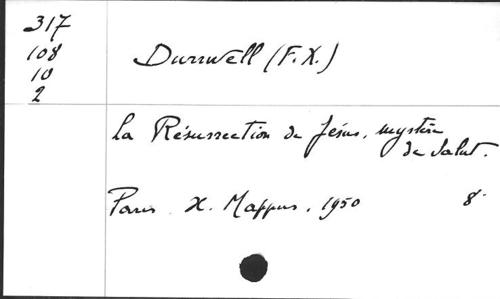 317
108
10
2
Durrwell (F.X.)
La Résurrection de Jésus, mystère
de Salut.
Paris X. Mappus, 1950 8°